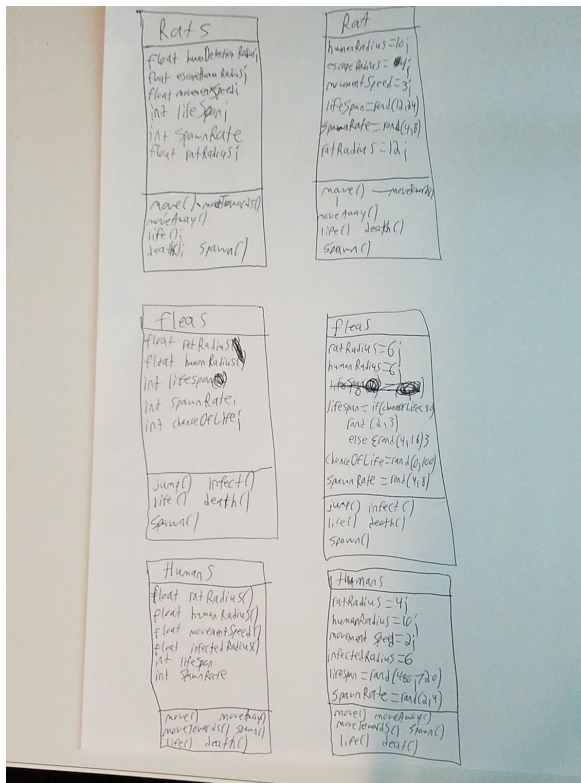 Rats
float humanDetectionRadius;
float escapeHumanRadius;
float movementSpeed;
int lifeSpan;
int spawnRate
float ratRadius;
move() moveTowards()
moveAway()
life();
death(); spawn()
Rat
humanRadius=10;
escapeRadius= 4;
movementSpeed=3;
lifeSpan=rand(12,24)
spawnRate=rand(4,8)
ratRadius=12;
move() moveTowards()
moveAway()
life() death()
spawn()
fleas
float ratRadius
float humanRadius
int lifespan
int spawnRate
int chanceOfLife;
jump() infect()
life() death()
spawn()
fleas
ratRadius=6;
humanRadius=6;
lifespan= if(chanceOfLife
rand(2,3)
else {rand(4,16)}
chanceOfLife=rand(0,100)
spawnRate=rand(4,8)
jump() infect()
life() death()
spawn()
Humans
float ratRadius()
float humanRadius()
float movementSpeed()
float infectedRadius()
int lifespan
int spawnRate
move() moveAway()
moveTowards() spawn()
life() death()
Humans
ratRadius=4;
humanRadius=10;
movement speed=2;
infectedRadius=6
lifespan=rand(480,720)
spawnRate=rand(2,4)
move() moveAway()
moveTowards() spawn()
life() death()